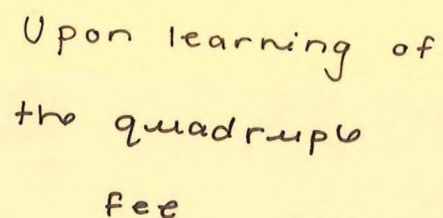 Upon learning of
the quadruple
fee